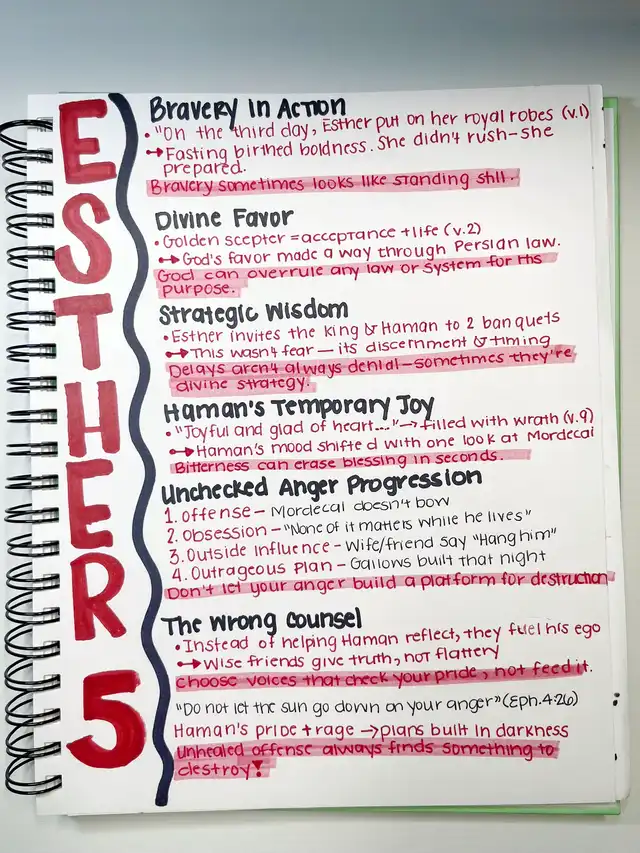 ESTHER 5
Bravery in Action
• "On the third day, Esther put on her royal robes (v.1)
↦ Fasting birthed boldness. She didn't rush—she
prepared.
Bravery sometimes looks like standing still.
Divine Favor
• Golden scepter = acceptance + life (v.2)
↦ God's favor made a way through Persian law.
God can overrule any law or system for His
purpose.
Strategic Wisdom
• Esther invites the king & Haman to 2 banquets
↦ This wasn't fear — its discernment & timing
Delays aren't always denial—sometimes they're
divine strategy.
Haman's Temporary Joy
• "Joyful and glad of heart...." → filled with wrath (v.9)
↦ Haman's mood shifted with one look at Mordecai
Bitterness can erase blessing in seconds.
Unchecked Anger Progression
1. Offense — Mordecai doesn't bow
2. Obsession — "None of it matters while he lives"
3. Outside Influence - Wife/friend say "Hang him"
4. Outrageous Plan — Gallows built that night
Don't let your anger build a platform for destruction
The Wrong Counsel
• Instead of helping Haman reflect, they fuel his ego
↦ Wise friends give truth, not flattery
Choose voices that check your pride, not feed it.
"Do not let the sun go down on your anger" (Eph. 4:26)
Haman's pride + rage → plans built in darkness
Unhealed offense always finds something to
destroy!